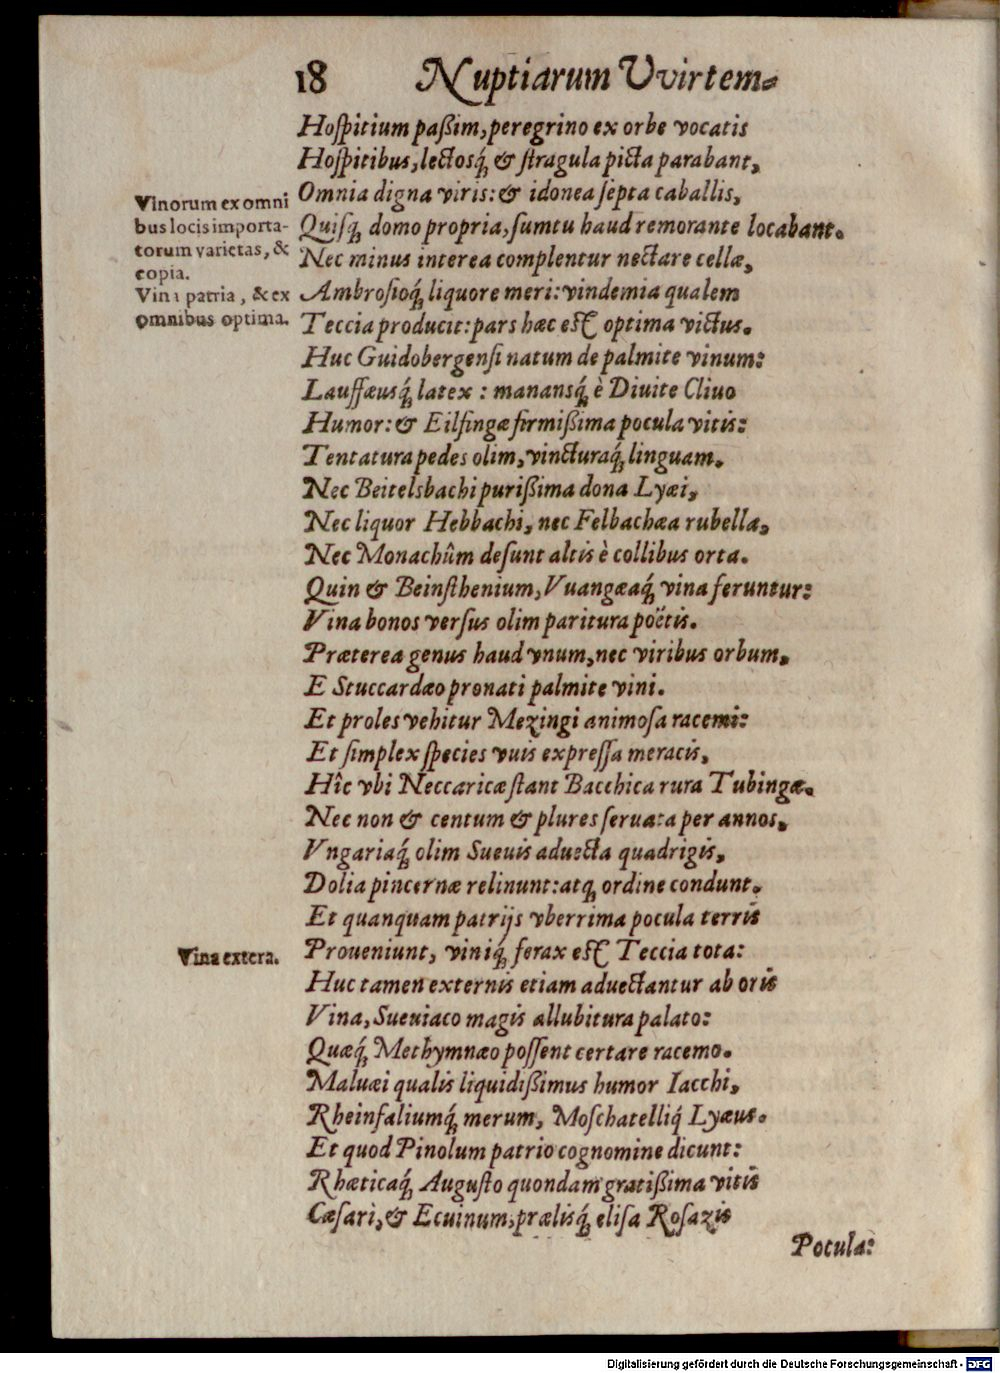 18 Nuptiarum Vvirtem-
Hoſpitium paßim, peregrino ex orbe vocatis
Hoſpitibus, lectosq́; & ſtragula picta parabant,
Omnia digna viris: & idonea ſepta caballis,
Quiſq; domo propria, ſumtu haud remorante locabant.
Nec minus interea complentur nectare cellæ,
Ambroſioq́; liquore meri: vindemia qualem
Teccia producit: pars hæc eſt optima victus.
Huc Guidobergenſi natum de palmite vinum:
Lauffæusq́; latex : manansq́; è Diuite Cliuo
Humor: & Eilfingæ firmißima pocula vitis:
Tentatura pedes olim, vincturaq́; linguam.
Nec Beitelsbachi purißima dona Lyæi,
Nec liquor Hebbachi, nec Felbachæa rubella,
Nec Monachûm deſunt altis è collibus orta.
Quin & Beinſthenium, Vuangæaq́; vina feruntur:
Vina bonos verſus olim paritura poëtis.
Præterea genus haud vnum, nec viribus orbum,
E Stuccardæo pronati palmite vini.
Et proles vehitur Mezingi animoſa racemi:
Et ſimplex ſpecies vuis expreſſa meracis,
Hîc vbi Neccaricæ ſtant Bacchica rura Tubingæ.
Nec non & centum & plures ſeruata per annos,
Vngariaq́; olim Sueuis aduecta quadrigis,
Dolia pincernæ relinunt: atq; ordine condunt.
Et quanquam patrijs vberrima pocula terris
Proueniunt, viniq́; ferax eſt Teccia tota:
Huc tamen externis etiam aduectantur ab oris
Vina, Sueuiaco magis allubitura palato:
Quæq́; Methymnæo poſſent certare racemo.
Maluæi qualis liquidißimus humor Iacchi,
Rheinfaliumq́; merum, Moſchatelliq́; Lyæus.
Et quod Pinolum patrio cognomine dicunt:
Rhæticaq́; Auguſto quondam gratißima vitis
Cæſari, & Ecuinum, prælisq́; eliſa Roſazis
Potula:
Vinorum ex omni
bus locis importa-
torum varietas, &
copia.
Vina patria, & ex
omnibus optima.
Vina extera.
Digitalisierung gefördert durch die Deutsche Forschungsgemeinschaft - DFG